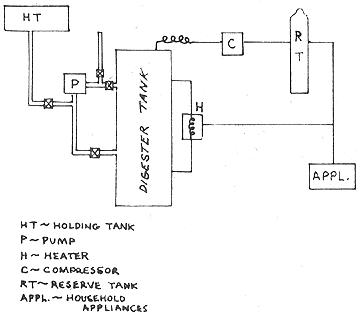 HT
P
DIGESTER TANK
C
R
T
H
APPL.
HT ~ HOLDING TANK
P ~ PUMP
H ~ HEATER
C ~ COMPRESSOR
RT ~ RESERVE TANK
APPL. ~ HOUSEHOLD
APPLIANCES